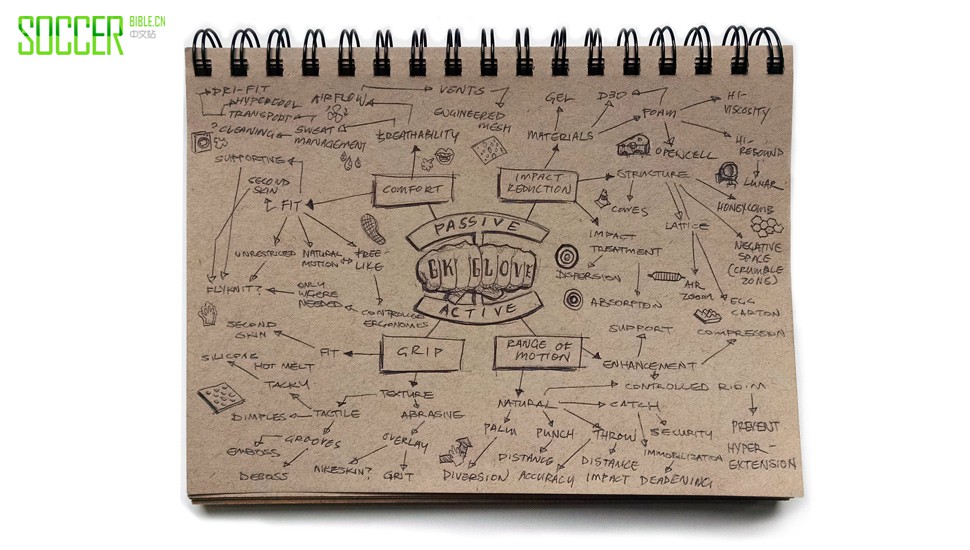 SOCCER
BIBLE.CN
中文站
DRI-FIT
HYPERCOOL
TRANSPORT
AIRFLOW
VENTS
ENGINEERED
MESH
GEL
D3O
FOAM
HI-
VISCOSITY
? CLEANING
SWEAT
MANAGEMENT
BREATHABILITY
MATERIALS
OPENCELL
HI-
REBOUND
SUPPORTIVE
SECOND
SKIN
FIT
COMFORT
IMPACT
REDUCTION
STRUCTURE
LUNAR
CONES
HONEYCOMB
LATTICE
PASSIVE
GK GLOVE
ACTIVE
IMPACT
TREATMENT
NEGATIVE
SPACE
(CRUMBLE
ZONE)
UNRESTRICED
NATURAL
MOTION
FREE-
LIKE
DISPERSION
AIR
ZOOM
FLYKNIT?
ONLY
WHERE
NEEDED
CONTROLLED
ERGONOMICS
ABSORPTION
EGG
CARTON
SECOND
SKIN
SUPPORT
COMPRESSION
SILICONE
HOT MELT
FIT
GRIP
RANGE OF
MOTION
ENHANCEMENT
TACKY
TEXTURE
NATURAL
CONTROLLED
DIMPLES
TACTILE
ABRASIVE
CATCH
PREVENT
HYPER-
EXTENSION
GROOVES
OVERLAY
PALM
PUNCH
THROW
SECURITY
EMBOSS
DISTANCE
DISTANCE
DEBOSS
NIKESKIN?
GRIT
DIVERSION
ACCURACY
IMPACT DEADENING